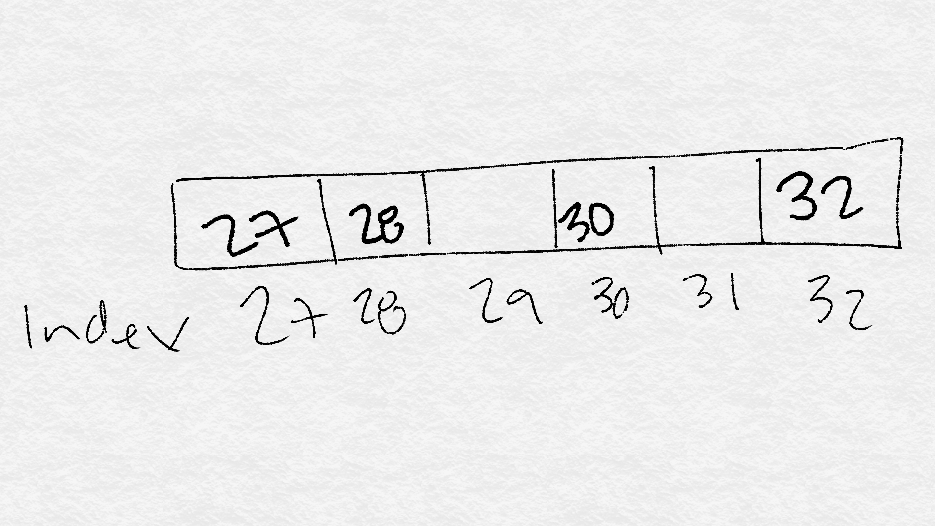 27 28 30 32
Index 27 28 29 30 31 32